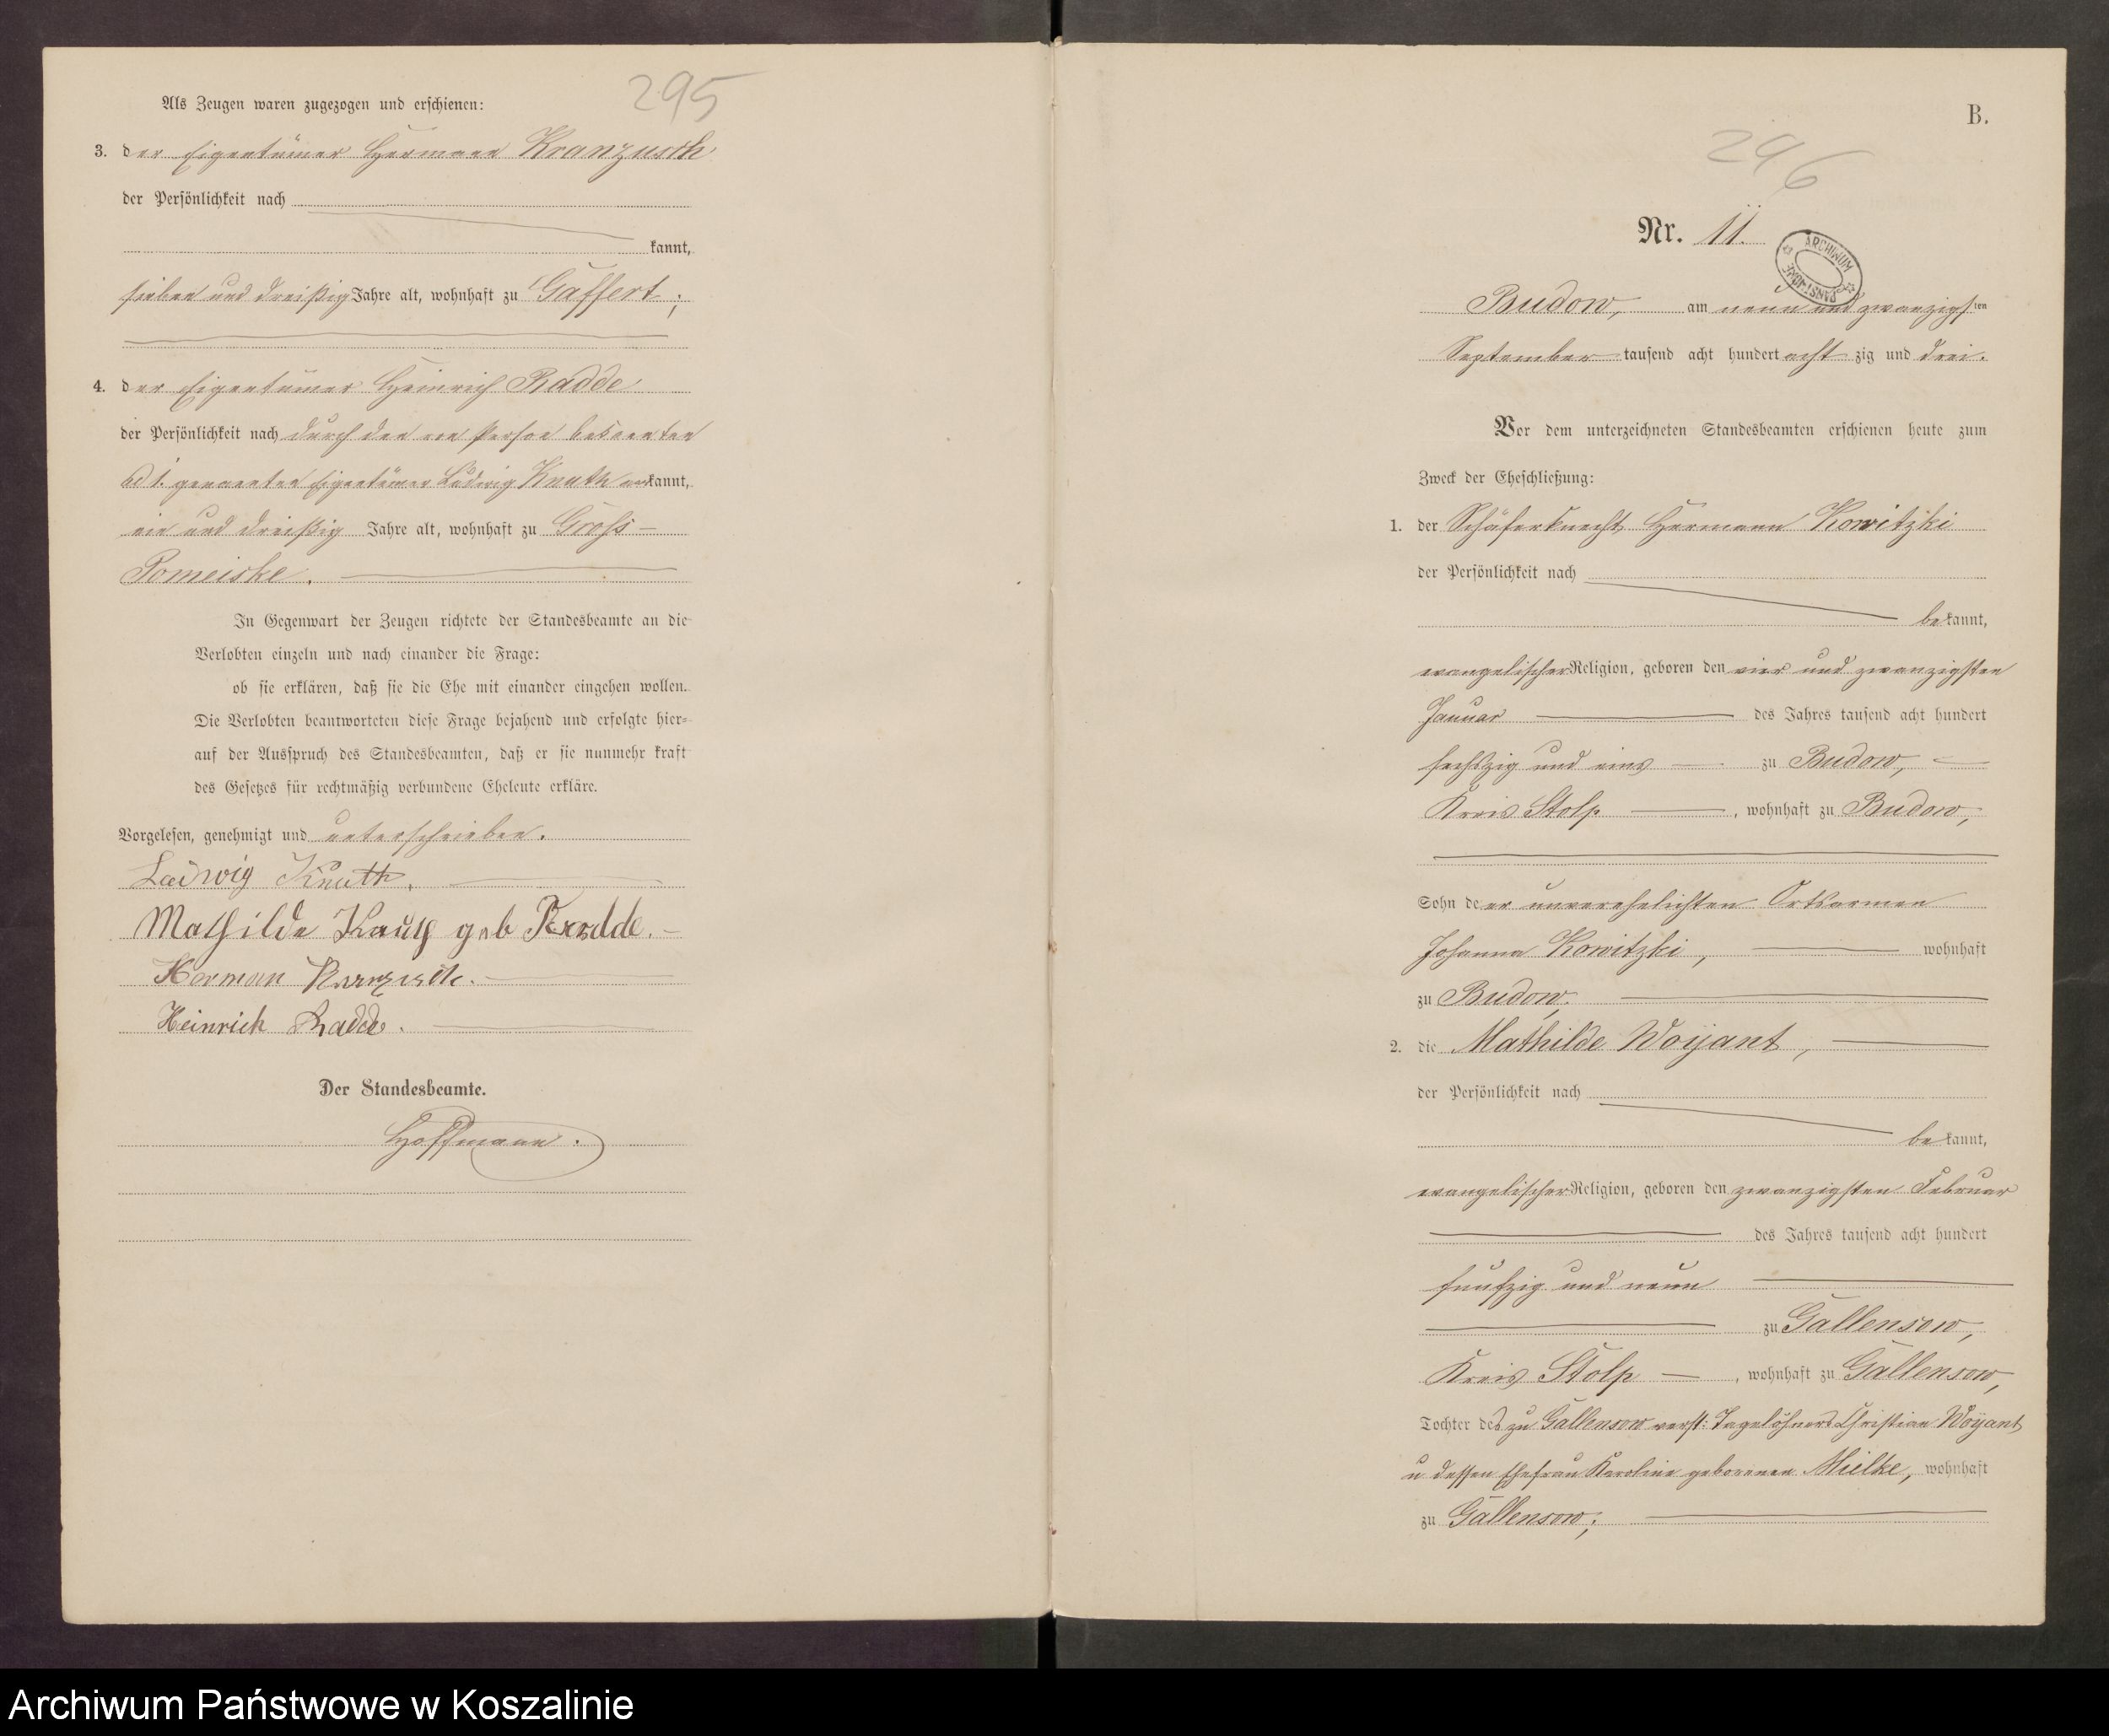 295
Als Zeugen waren zugezogen und erschienen:
3. der Eigentümer Hermann Kranzusch
der Persönlichkeit nach
kannt,
sieben und dreißig Jahre alt, wohnhaft zu Gaffert;
4. der Eigentümer Heinrich Radde
der Persönlichkeit nach durch den von Person bekannten
ad 1. genannten Eigentümer Ludwig Knuth erkannt,
ein und dreißig Jahre alt, wohnhaft zu Gross-
Pomeiske.
In Gegenwart der Zeugen richtete der Standesbeamte an die
Verlobten einzeln und nach einander die Frage:
ob sie erklären, daß sie die Ehe mit einander eingehen wollen.
Die Verlobten beantworteten diese Frage bejahend und erfolgte hier-
auf der Ausspruch des Standesbeamten, daß er sie nunmehr kraft
des Gesetzes für rechtmäßig verbundene Eheleute erkläre.
Vorgelesen, genehmigt und unterschrieben.
Ludwig Knuth.
Mathilde geb Radde.
Herman
Heinrich Radde.
Der Standesbeamte.
Hoffmann.
B.
296
Nr. 11.
ARCHIWUM
Budow, am neun und zwanzigsten
September tausend acht hundert acht zig und drei.
Vor dem unterzeichneten Standesbeamten erschienen heute zum
Zweck der Eheschließung:
1. der Schäferknecht Hermann Kowitzki
der Persönlichkeit nach
be kannt,
evangelischer Religion, geboren den vier und zwanzigsten
Januar des Jahres tausend acht hundert
sechszig und eins zu Budow,
Kreis Stolp, wohnhaft zu Budow,
Sohn der unverehelichten Ortsarmen
Johanna Kowitzki, wohnhaft
zu Budow,
2. die Mathilde Woyant,
der Persönlichkeit nach
be kannt,
evangelischer Religion, geboren den zwanzigsten Februar
des Jahres tausend acht hundert
fünfzig und neun
zu Gallensow,
Kreis Stolp, wohnhaft zu Gallensow,
Tochter des zu Gallensow verst: Tagelöhners Christian Woyant
u dessen Ehefrau Karoline geborenen Mielke, wohnhaft
zu Gallensow;
Archiwum Państwowe w Koszalinie